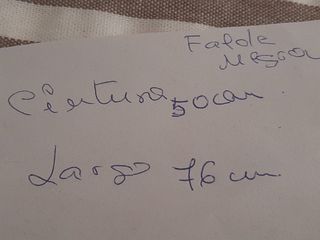 Falda
Negra
Cintura 50 cm
Largo 76 cm